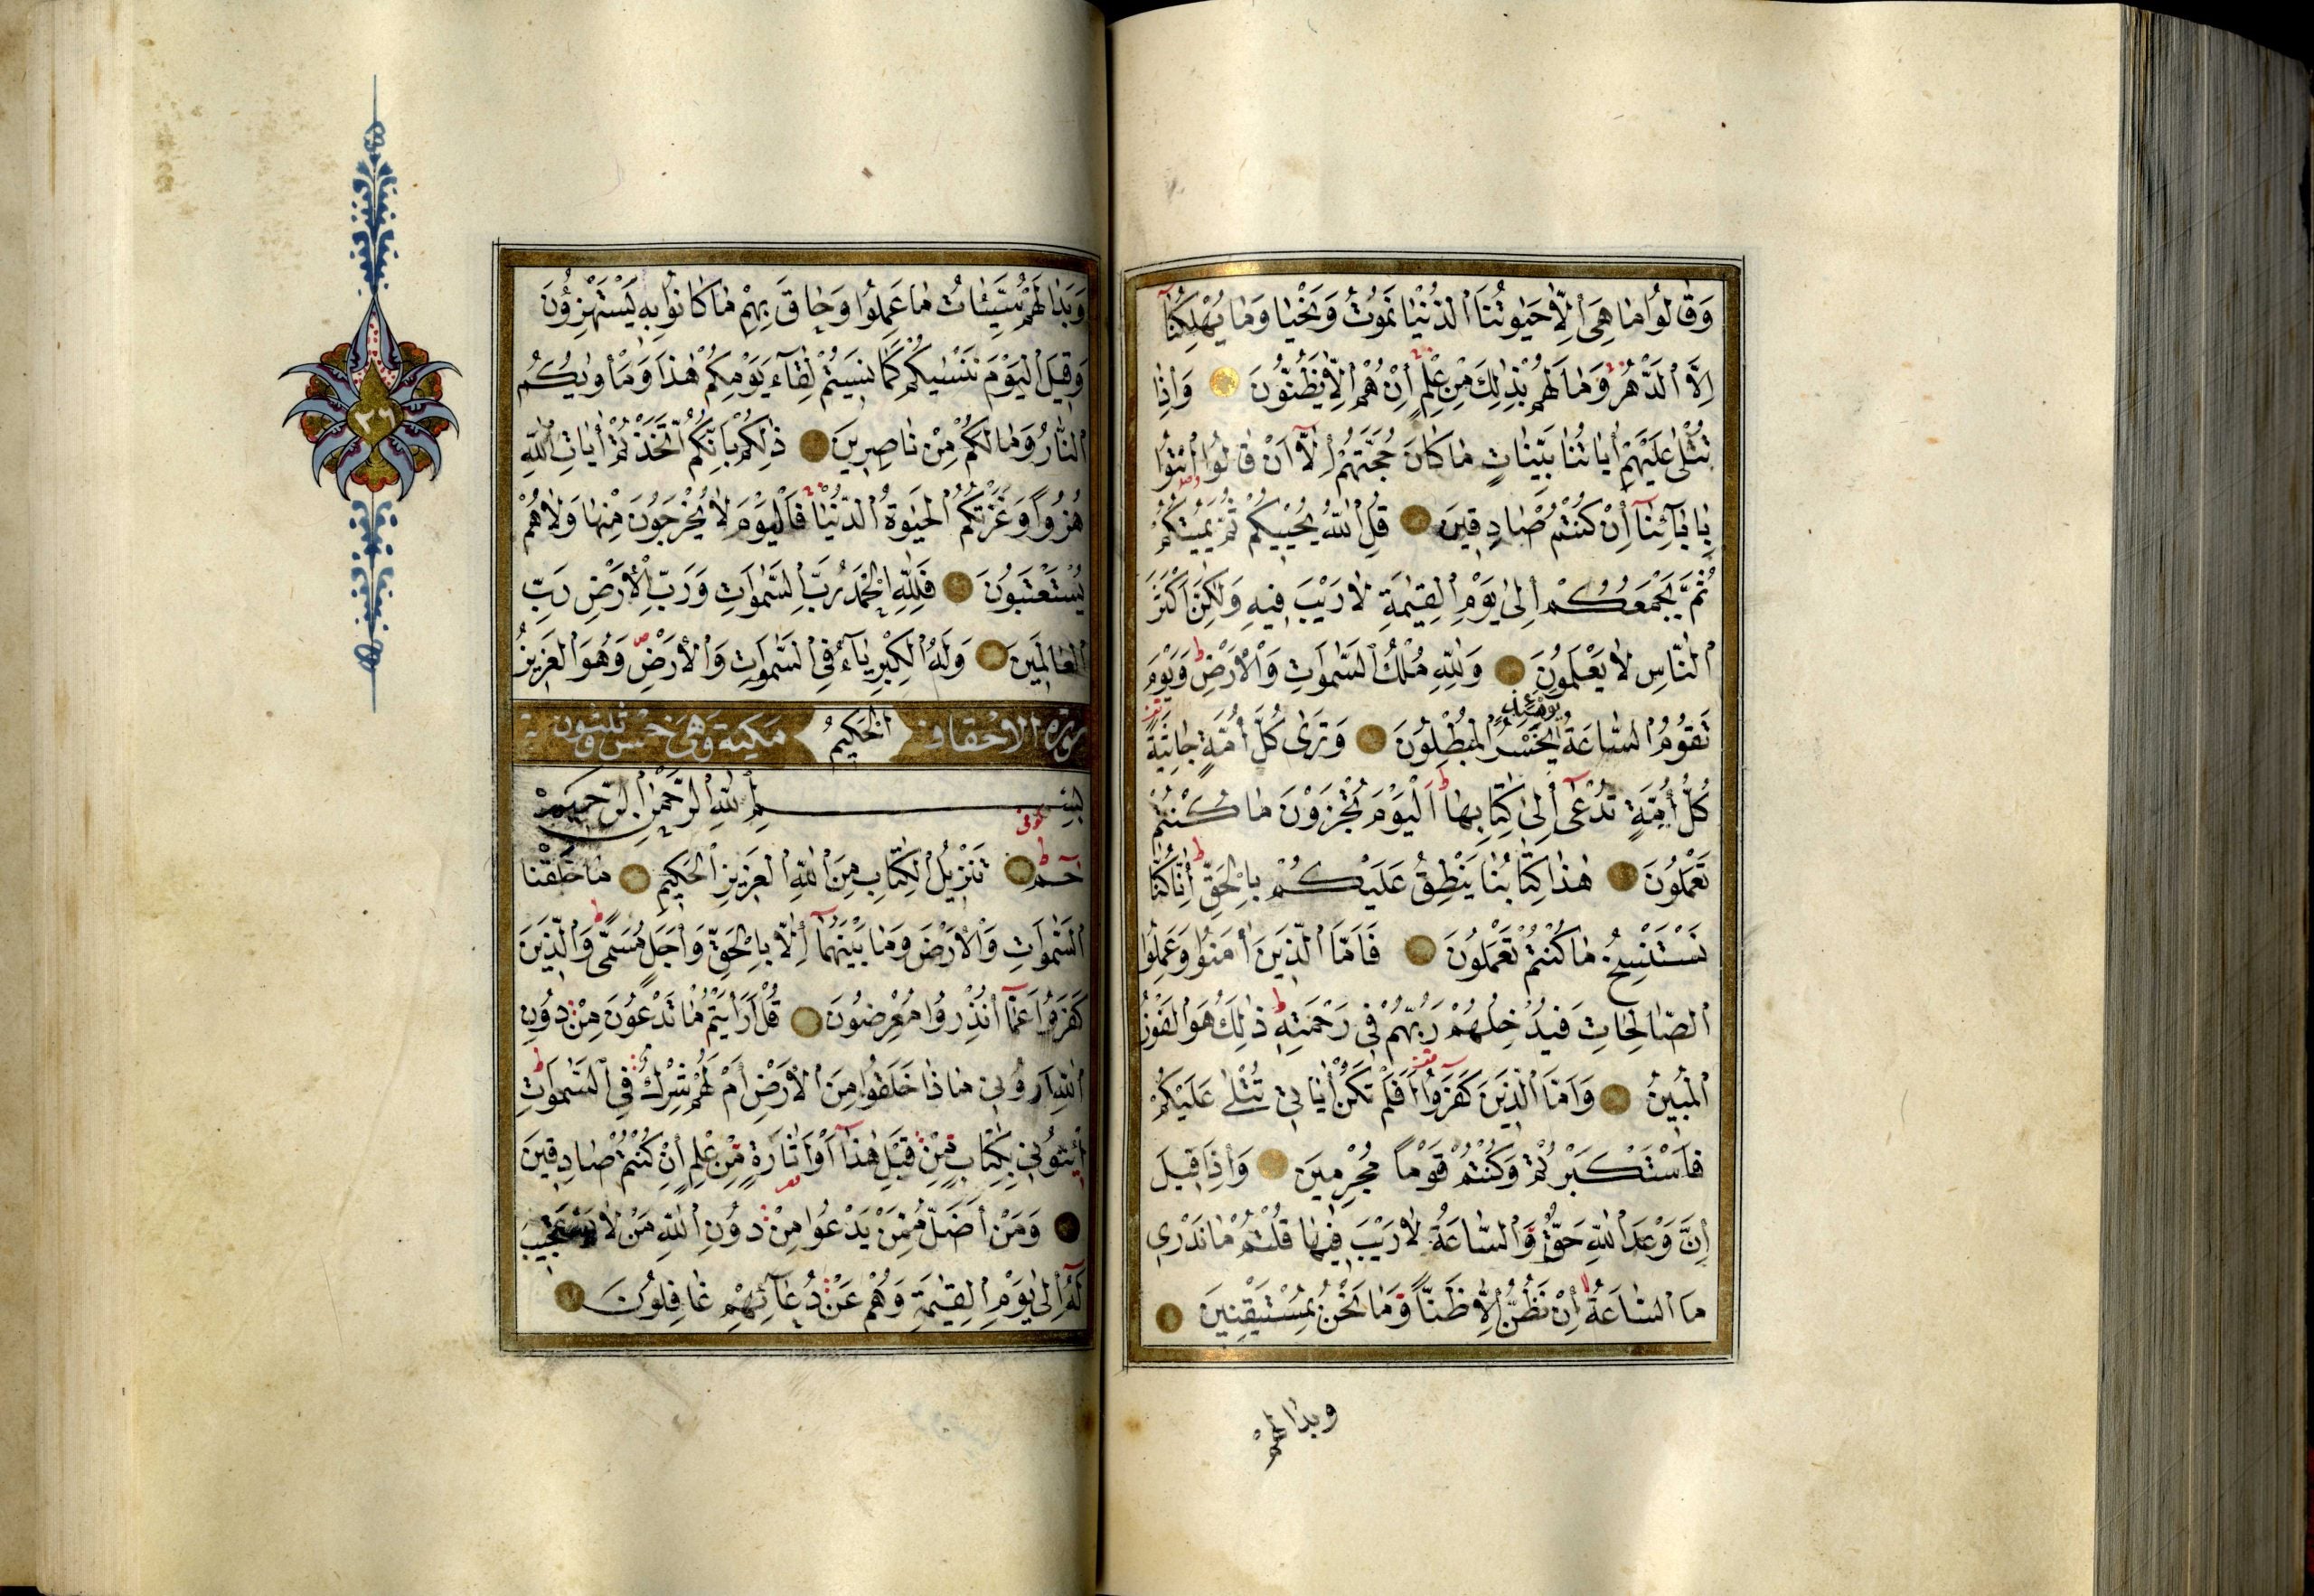 وَقَالُوا مَا هِيَ اِلَّا حَيٰوتُنَا الدُّنْيَا نَمُوتُ وَنَحْيَا وَمَا يُهْلِكُنَا
اِلَّا الدَّهْرُ وَمَا لَهُمْ بِذٰلِكَ مِنْ عِلْمٍ اِنْ هُمْ اِلَّا يَظُنُّونَ وَاِذَا
تُتْلٰى عَلَيْهِمْ اٰيَاتُنَا بَيِّنَاتٍ مَا كَانَ حُجَّتَهُمْ اِلَّا اَنْ قَالُوا ائْتُوا
بِاٰبَآئِنَا اِنْ كُنْتُمْ صَادِقِينَ قُلِ اللّٰهُ يُحْيِيكُمْ ثُمَّ يُمِيتُكُمْ
ثُمَّ يَجْمَعُكُمْ اِلٰى يَوْمِ الْقِيٰمَةِ لَا رَيْبَ فِيهِ وَلٰكِنَّ اَكْثَرَ
النَّاسِ لَا يَعْلَمُونَ وَلِلّٰهِ مُلْكُ السَّمٰوَاتِ وَالْاَرْضِ وَيَوْمَ
تَقُومُ السَّاعَةُ يَوْمَئِذٍ يَخْسَرُ الْمُبْطِلُونَ وَتَرٰى كُلَّ اُمَّةٍ جَاثِيَةً
كُلُّ اُمَّةٍ تُدْعٰى اِلٰى كِتَابِهَا اَلْيَوْمَ تُجْزَوْنَ مَا كُنْتُمْ
تَعْمَلُونَ هٰذَا كِتَابُنَا يَنْطِقُ عَلَيْكُمْ بِالْحَقِّ اِنَّا كُنَّا
نَسْتَنْسِخُ مَا كُنْتُمْ تَعْمَلُونَ فَاَمَّا الَّذِينَ اٰمَنُوا وَعَمِلُوا
الصَّالِحَاتِ فَيُدْخِلُهُمْ رَبُّهُمْ فِي رَحْمَتِهِ ذٰلِكَ هُوَ الْفَوْزُ
الْمُبِينُ وَاَمَّا الَّذِينَ كَفَرُوا اَفَلَمْ تَكُنْ اٰيَاتِي تُتْلٰى عَلَيْكُمْ
فَاسْتَكْبَرْتُمْ وَكُنْتُمْ قَوْمًا مُجْرِمِينَ وَاِذَا قِيلَ
اِنَّ وَعْدَ اللّٰهِ حَقٌّ وَالسَّاعَةُ لَا رَيْبَ فِيهَا قُلْتُمْ مَا نَدْرِي
مَا السَّاعَةُ اِنْ نَظُنُّ اِلَّا ظَنًّا وَمَا نَحْنُ بِمُسْتَيْقِنِينَ
وبدا لهم
وَبَدَا لَهُمْ سَيِّئَاتُ مَا عَمِلُوا وَحَاقَ بِهِمْ مَا كَانُوا بِهِ يَسْتَهْزِؤُنَ
وَقِيلَ الْيَوْمَ نَنْسٰيكُمْ كَمَا نَسِيتُمْ لِقَآءَ يَوْمِكُمْ هٰذَا وَمَاْوٰيكُمُ
النَّارُ وَمَا لَكُمْ مِنْ نَاصِرِينَ ذٰلِكُمْ بِاَنَّكُمُ اتَّخَذْتُمْ اٰيَاتِ اللّٰهِ
هُزُوًا وَغَرَّتْكُمُ الْحَيٰوةُ الدُّنْيَا فَالْيَوْمَ لَا يُخْرَجُونَ مِنْهَا وَلَا هُمْ
يُسْتَعْتَبُونَ فَلِلّٰهِ الْحَمْدُ رَبِّ السَّمٰوَاتِ وَرَبِّ الْاَرْضِ رَبِّ
الْعَالَمِينَ وَلَهُ الْكِبْرِيَآءُ فِي السَّمٰوَاتِ وَالْاَرْضِ وَهُوَ الْعَزِيزُ
سورة الاحقاف الْحَكِيمُ مكية وهى خمس وثلثون آية
بِسْمِ اللّٰهِ الرَّحْمٰنِ الرَّحِيمِ
حٰمٓ كوفى تَنْزِيلُ الْكِتَابِ مِنَ اللّٰهِ الْعَزِيزِ الْحَكِيمِ مَا خَلَقْنَا
السَّمٰوَاتِ وَالْاَرْضَ وَمَا بَيْنَهُمَا اِلَّا بِالْحَقِّ وَاَجَلٍ مُسَمًّى وَالَّذِينَ
كَفَرُوا عَمَّا اُنْذِرُوا مُعْرِضُونَ قُلْ اَرَاَيْتُمْ مَا تَدْعُونَ مِنْ دُونِ
اللّٰهِ اَرُونِي مَاذَا خَلَقُوا مِنَ الْاَرْضِ اَمْ لَهُمْ شِرْكٌ فِي السَّمٰوَاتِ
اِيتُونِي بِكِتَابٍ مِنْ قَبْلِ هٰذَا اَوْ اَثَارَةٍ مِنْ عِلْمٍ اِنْ كُنْتُمْ صَادِقِينَ
وَمَنْ اَضَلُّ مِمَّنْ يَدْعُوا مِنْ دُونِ اللّٰهِ مَنْ لَا يَسْتَجِيبُ
لَهُ اِلٰى يَوْمِ الْقِيٰمَةِ وَهُمْ عَنْ دُعَآئِهِمْ غَافِلُونَ
٢٦